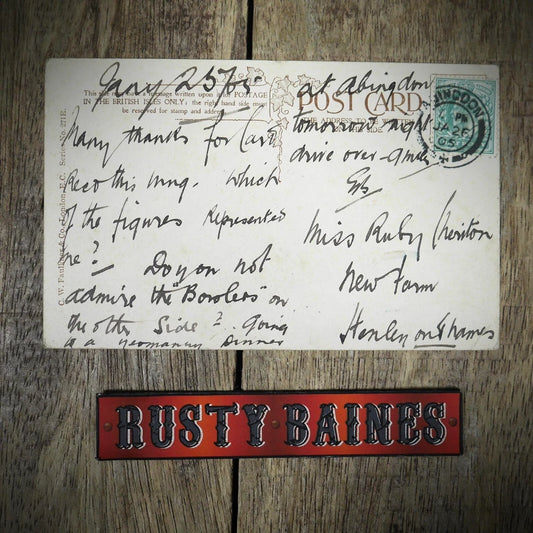 This side may be used for a message written upon if for POSTAGE
IN THE BRITISH ISLES ONLY: the right hand side must
be reserved for stamp and address.
Many thanks for Card
Recd this mng. Which
of the figures represented
me? Do you not
admire the "Bowlers" on
the other Side? Going
to a Yeomanry Dinner
at Abingdon
tomorrow night
drive over 9 miles
POST CARD
THE ADDRESS TO BE
ABINGDON
PM
JA 26
05
Miss Ruby Cheriton
New Farm
Henley on Thames
C. W. Faulkner & Co., London, E.C. Series No. 271E.
RUSTY BAINES